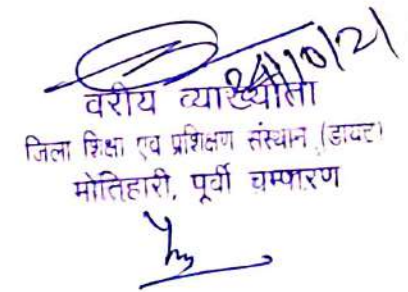 24/10/21
वरीय व्याख्याता
जिला शिक्षा एव प्रशिक्षण संस्थान (डायट)
मोतिहारी, पूर्वी चम्पारण